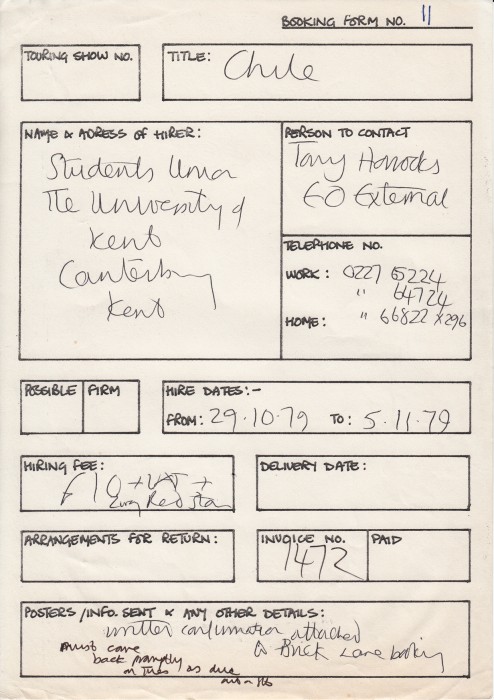 BOOKING FORM NO. 11
TOURING SHOW NO.
TITLE: Chile
NAME & ADRESS OF HIRER:
Students Union
The University of
Kent
Canterbury
Kent
PERSON TO CONTACT
Tony Horrocks
EO External
TELEPHONE NO.
WORK: 0227 65224
" 64724
HOME: " 66822 X296
POSSIBLE FIRM
HIRE DATES:-
FROM: 29.10.79 TO: 5.11.79
HIRING FEE:
£10 + VAT +
Red Star
DELIVERY DATE:
ARRANGEMENTS FOR RETURN:
INVOICE NO. PAID
1472
POSTERS/INFO. SENT & ANY OTHER DETAILS:
written confirmation attached
must come
back promptly
on Tues as due
out on
to Brick Lane booking